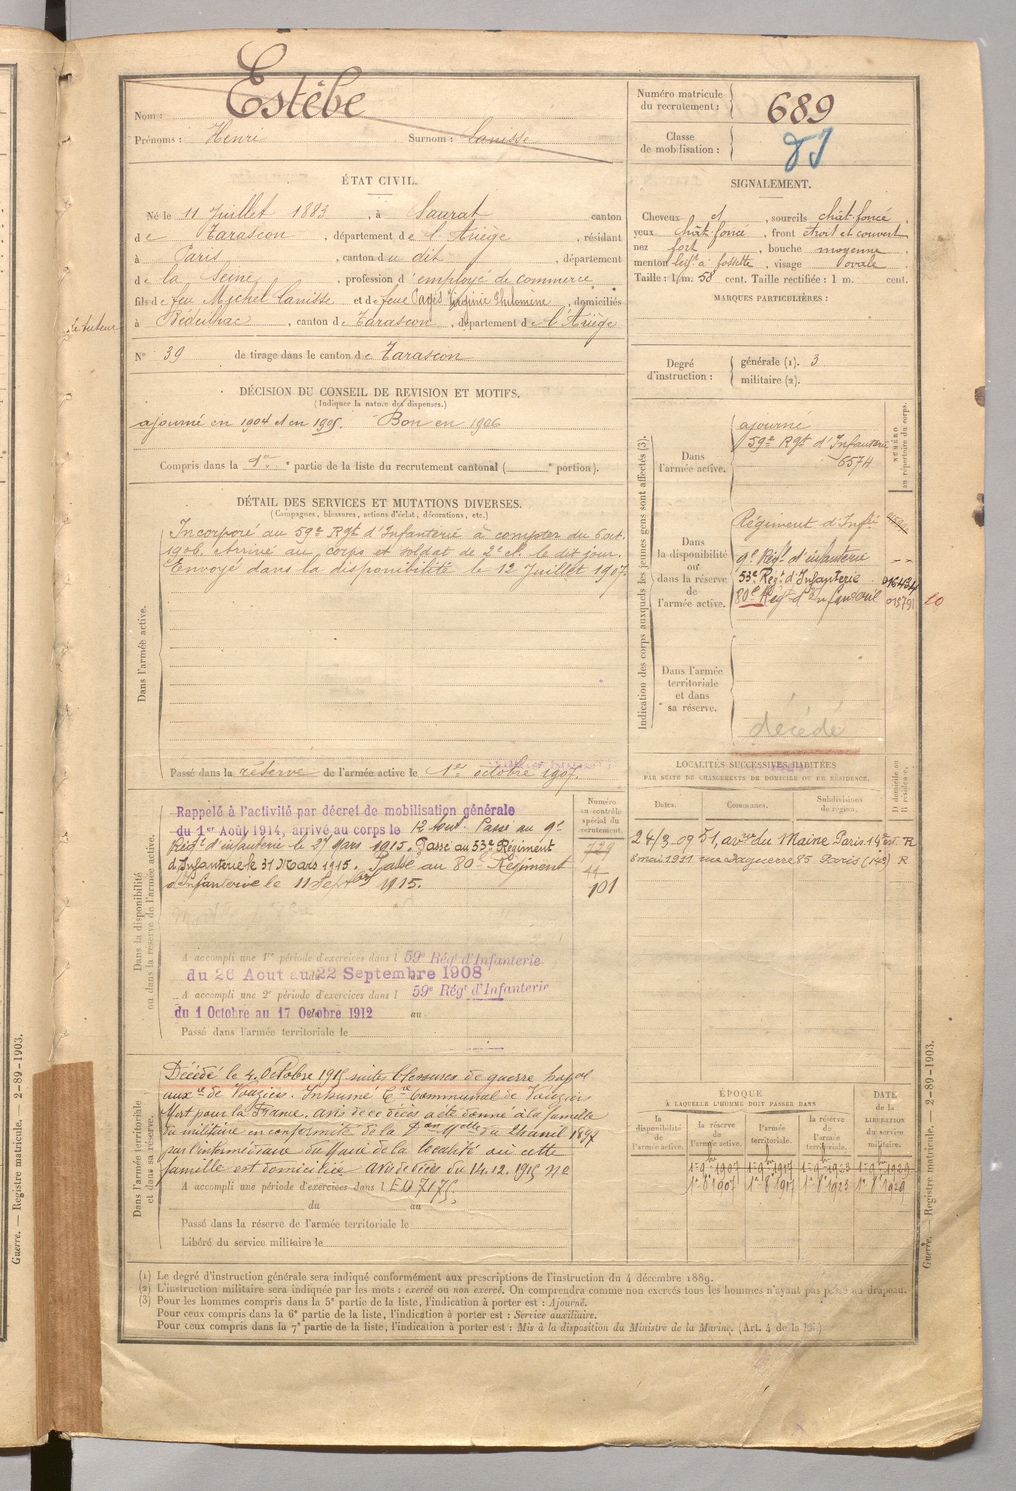 Nom : Estèbe
Prénoms : Henri Surnom : Canisse
Numéro matricule du recrutement : 689
Classe de mobilisation :
ÉTAT CIVIL.
Né le 11 Juillet 1883, à Saurat canton
de Tarascon, département de l'Ariège, résidant
à Paris, canton du dit, département
de la Seine, profession d'employé de commerce
fils de feu Michel Canisse et de feue Pagès Virginie Philomène, domiciliés
le tuteur
à Bédeilhac, canton de Tarascon, département de l'Ariège
N° 39 de tirage dans le canton de Tarascon
SIGNALEMENT.
Cheveux et, sourcils chât-foncé
yeux chât-foncé, front étroit et couvert
nez fort, bouche moyenne
menton à fossette, visage ovale
Taille : 1 m. 58 cent. Taille rectifiée : 1 m. cent.
MARQUES PARTICULIÈRES :
Degré d'instruction : générale (1). 3
militaire (2).
DÉCISION DU CONSEIL DE REVISION ET MOTIFS.
(Indiquer la nature des dispenses.)
ajourné en 1904 et en 1905. Bon en 1906
Compris dans la 1re partie de la liste du recrutement cantonal ( portion).
DÉTAIL DES SERVICES ET MUTATIONS DIVERSES.
(Campagnes, blessures, actions d'éclat, décorations, etc.)
Dans l'armée active.
Incorporé au 59e Rgt d'Infanterie à compter du 6 oct.
1906. Arrivé au corps et soldat de 2e cl. le dit jour.
Envoyé dans la disponibilité le 12 Juillet 1907.
Passé dans la réserve de l'armée active le 1er octobre 1907.
Indication des corps auxquels les jeunes gens sont affectés (3).
NUMÉRO au répertoire du corps.
Dans l'armée active.
ajourné
59e Rgt d'Infanterie
6574
Dans la disponibilité ou dans la réserve de l'armée active.
Régiment d'Infie
9e Régt d'infanterie
53e Régt d'Infanterie 016434
80e Régt d'Infanterie 10
Dans l'armée territoriale et dans sa réserve.
décédé
LOCALITÉS SUCCESSIVES HABITÉES
PAR SUITE DE CHANGEMENTS DE DOMICILE OU DE RÉSIDENCE.
Dates. Communes. Subdivisions de région. D domicile ou R résidence.
24/3-09 51, avue du Maine Paris 14e arrt R
8 mai 1911 rue Daguerre 85 Paris (14e) R
Dans la disponibilité ou dans la réserve de l'armée active.
Numéro au contrôle spécial du recrutement.
729
44
101
Rappelé à l'activité par décret de mobilisation générale
du 1er Août 1914, arrivé au corps le 12 Août. Passé au 9e
Régt d'infanterie le 27 Mars 1915. Passé au 53e Régiment
d'Infanterie le 31 Mars 1915. Passé au 80e Régiment
d'Infanterie le 11 Septbre 1915.
A accompli une 1re période d'exercices dans l 59e Rég. d'Infanterie
du 26 Aout au 22 Septembre 1908
A accompli une 2e période d'exercices dans l 59e Régt d'Infanterie
du 1 Octobre au 17 Octobre 1912 au
Passé dans l'armée territoriale le
Dans l'armée territoriale et dans sa réserve.
Décédé le 4 Octobre 1915 suites blessures de guerre hôpal
de Vouziers. Inhumé Cre communal de Vouziers
Mort pour la France, avis de ce décès a été donné à la famille
du militaire en conformité de la du 1897
par l'intermédiaire du Maire de la localité où cette
famille est domiciliée avis de décès du 14.12.1915 n°
A accompli une période d'exercices dans l ED 7175.
du au
Passé dans la réserve de l'armée territoriale le
Libéré du service militaire le
ÉPOQUE
À LAQUELLE L'HOMME DOIT PASSER DANS
la disponibilité de l'armée active. la réserve de l'armée active. l'armée territoriale. la réserve de l'armée territoriale. DATE de la LIBÉRATION du service militaire.
1er 8bre 1907 1er 8bre 1917 1er 8bre 1923 1er 8bre 1929
1er 8 1907 1er 8 1917 1er 8 1923 1er 8 1929
(1) Le degré d'instruction générale sera indiqué conformément aux prescriptions de l'instruction du 4 décembre 1889.
(2) L'instruction militaire sera indiquée par les mots : exercé ou non exercé. On comprendra comme non exercés tous les hommes n'ayant pas passé au drapeau.
(3) Pour les hommes compris dans la 5e partie de la liste, l'indication à porter est : Ajourné.
Pour ceux compris dans la 6e partie de la liste, l'indication à porter est : Service auxiliaire.
Pour ceux compris dans la 7e partie de la liste, l'indication à porter est : Mis à la disposition du Ministre de la Marine. (Art. 4 de la loi.)
Guerre. — Registre matricule. — 2-89-1903.
Guerre. — Registre matricule. — 2-89-1903.